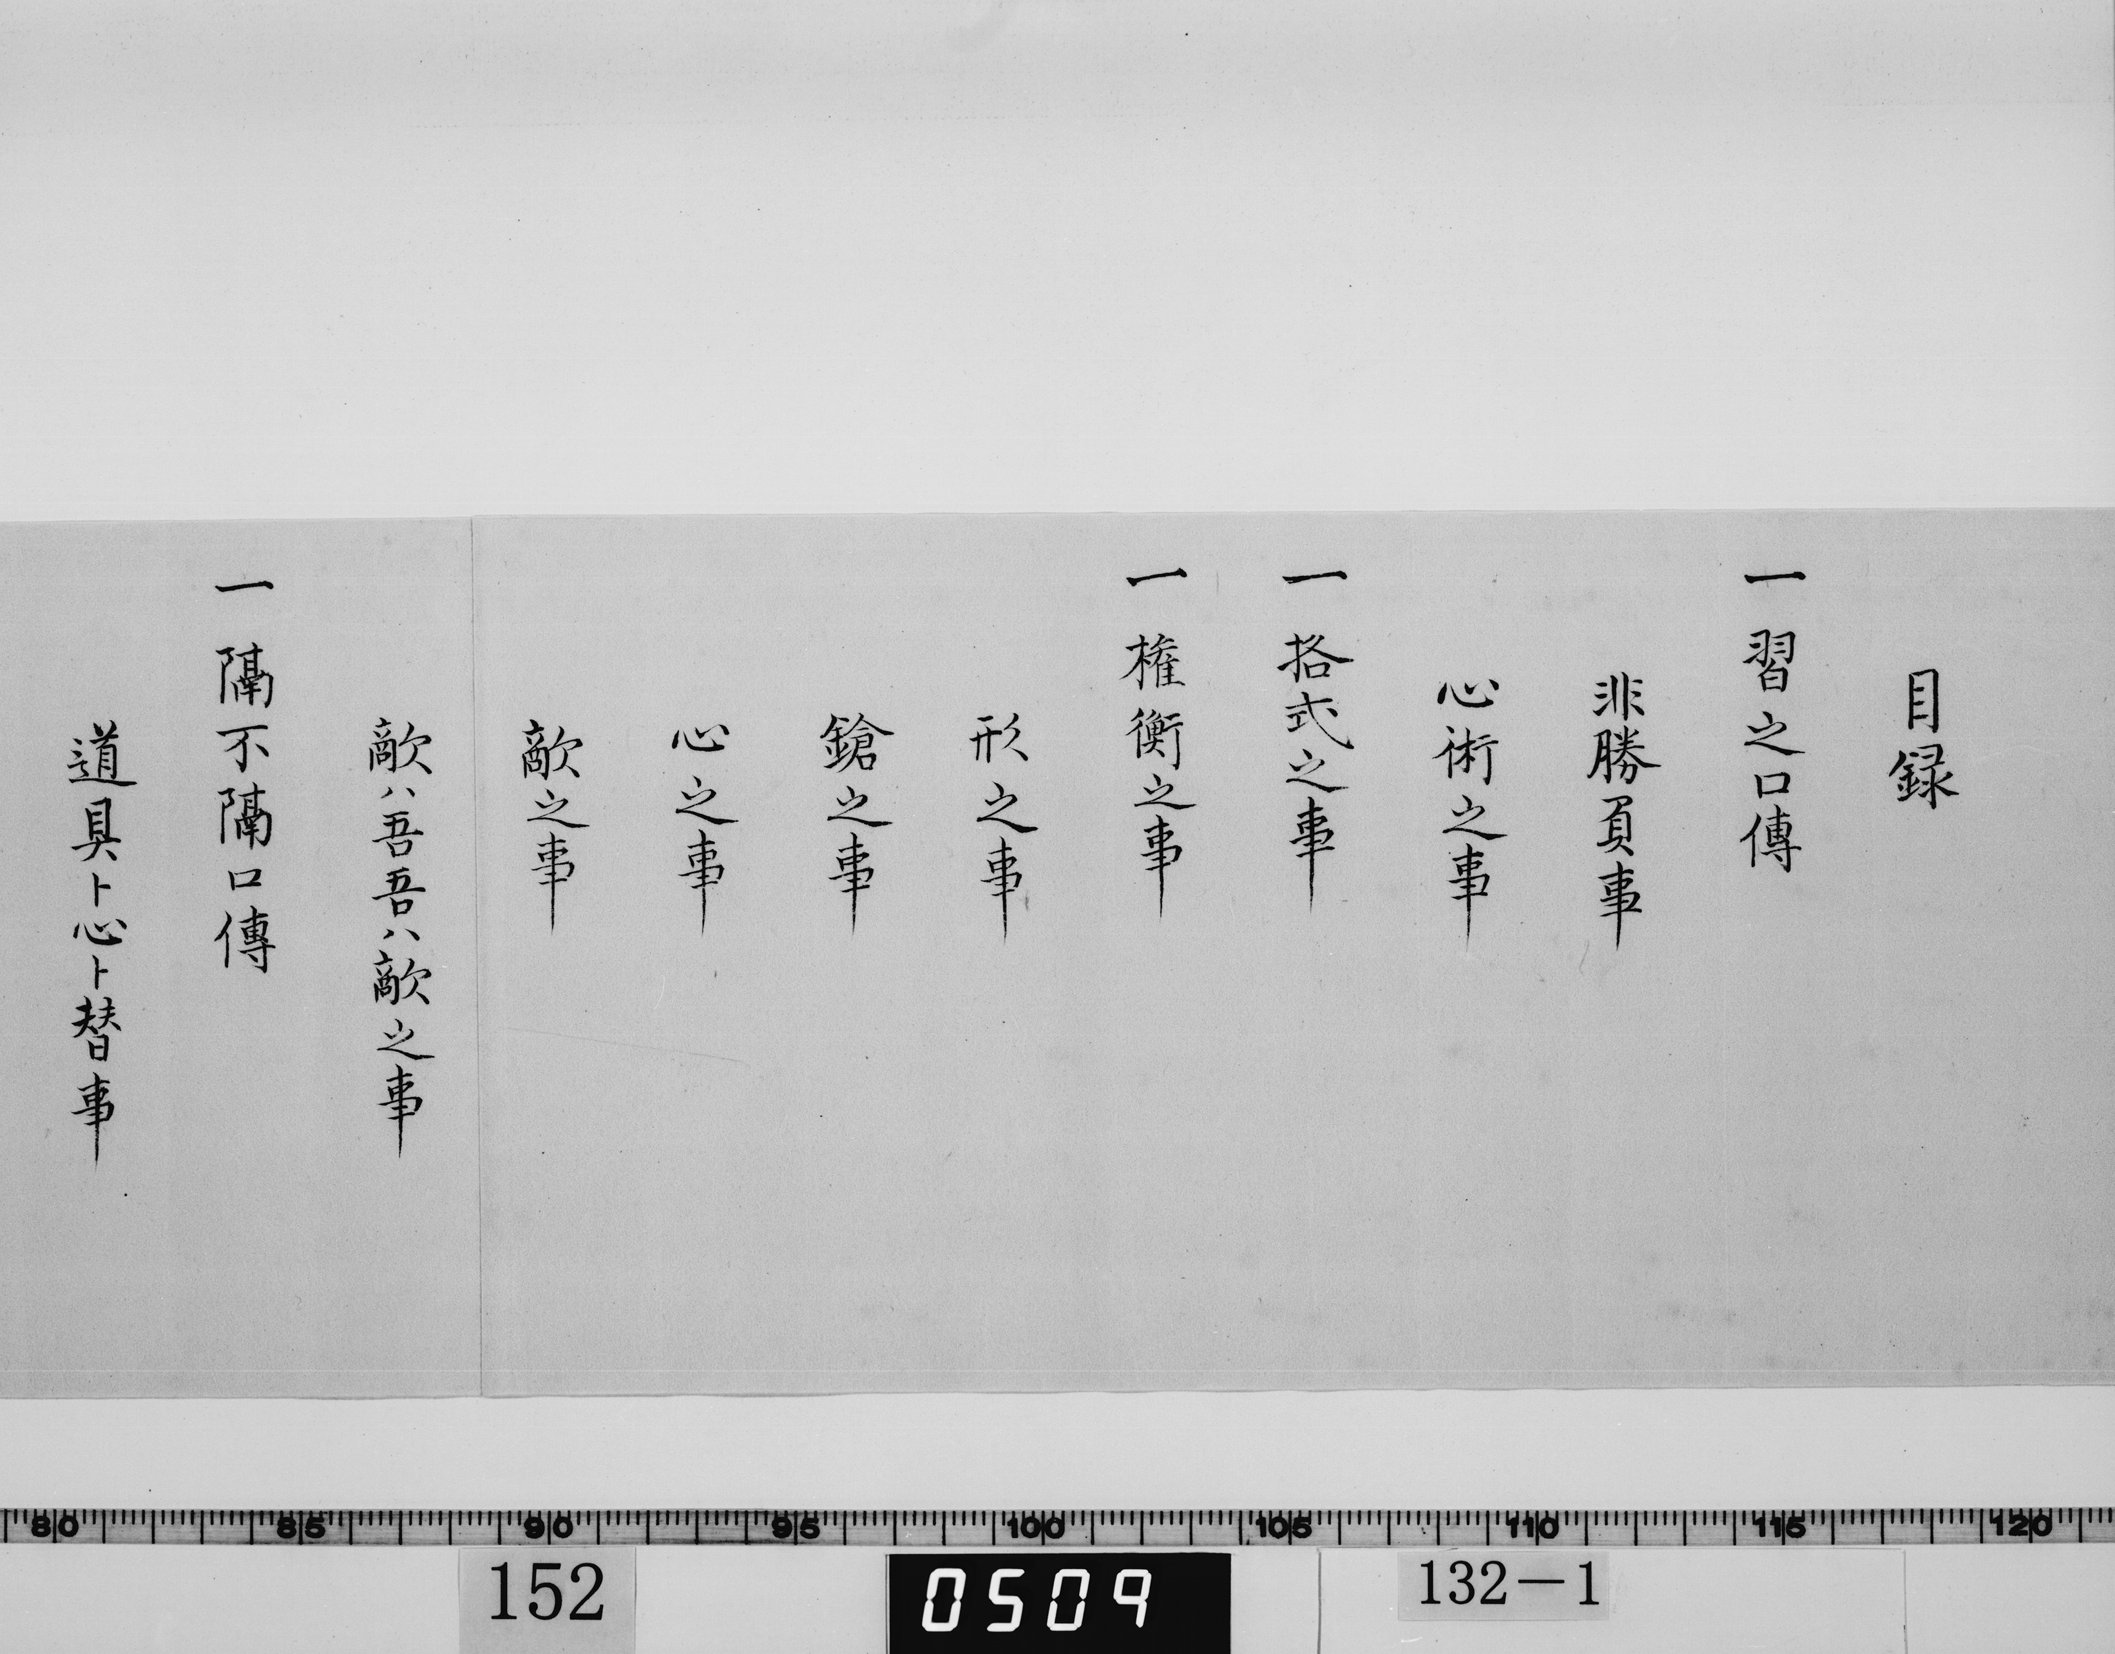 目録
一習之口傳
非勝負事
心術之事
一挌式之事
一権衡之事
形之事
鎗之事
心之事
敵之事
敵ハ吾吾ハ敵之事
一隔不隔口傳
道具ト心ト替事
80 85 90 95 100 105 110 115 120
152
0509
132-1